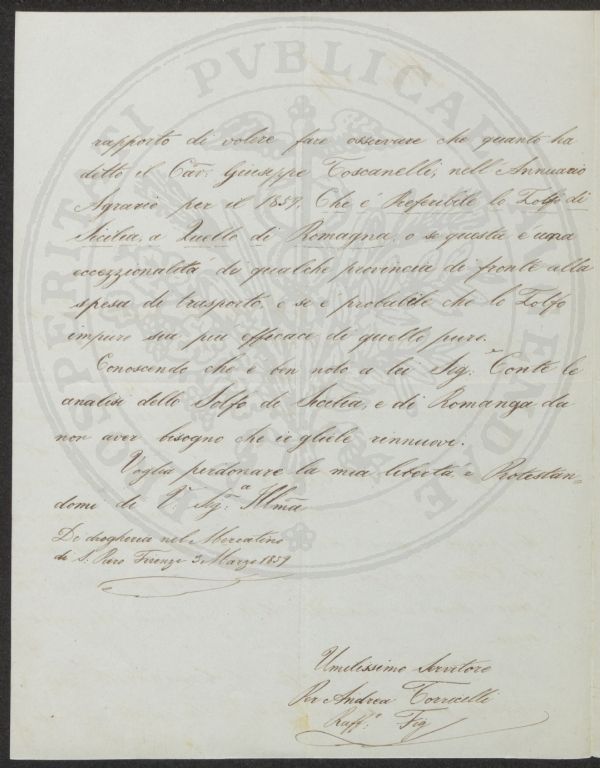 rapporto di volere fare osservare che quanto ha
detto il Cav: Giuseppe Toscanelli, nell'Annuario
Agrario per il 1859. Che è Preferibile lo Zolfo di
Sicilia, a Quello di Romagna, o se questa è una
eccezzionalità di qualche provincia di fronte alla
spesa di trasporto, e se è probabile che lo Zolfo
impuro sia più efficace di quello puro.
Conoscendo che è ben noto a lei Sigr: Conte le
analisi dello Solfo di Sicilia, e di Romanga da
non aver bisogno che io gliele rinnuovi.
Voglia perdonare la mia libertà e Protestan=
domi di V: Sig: Illma
Da drogheria nel Mercatino
di S: Piero Firenze 3 Marzo 1859
Umilissimo Servitore
Per Andrea Torricelli
Raff: Fig
PROSPERITATI PVBLICAE AVGENDAE